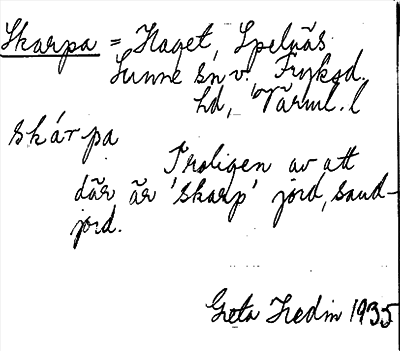 Skarpa = Haget, Spelnäs
Sunne sn v. Fryksd.
hd, Värml. l
skárpa
Troligen av att
där är 'skarp' jord, sand-
jord.
Greta Hedin 1935